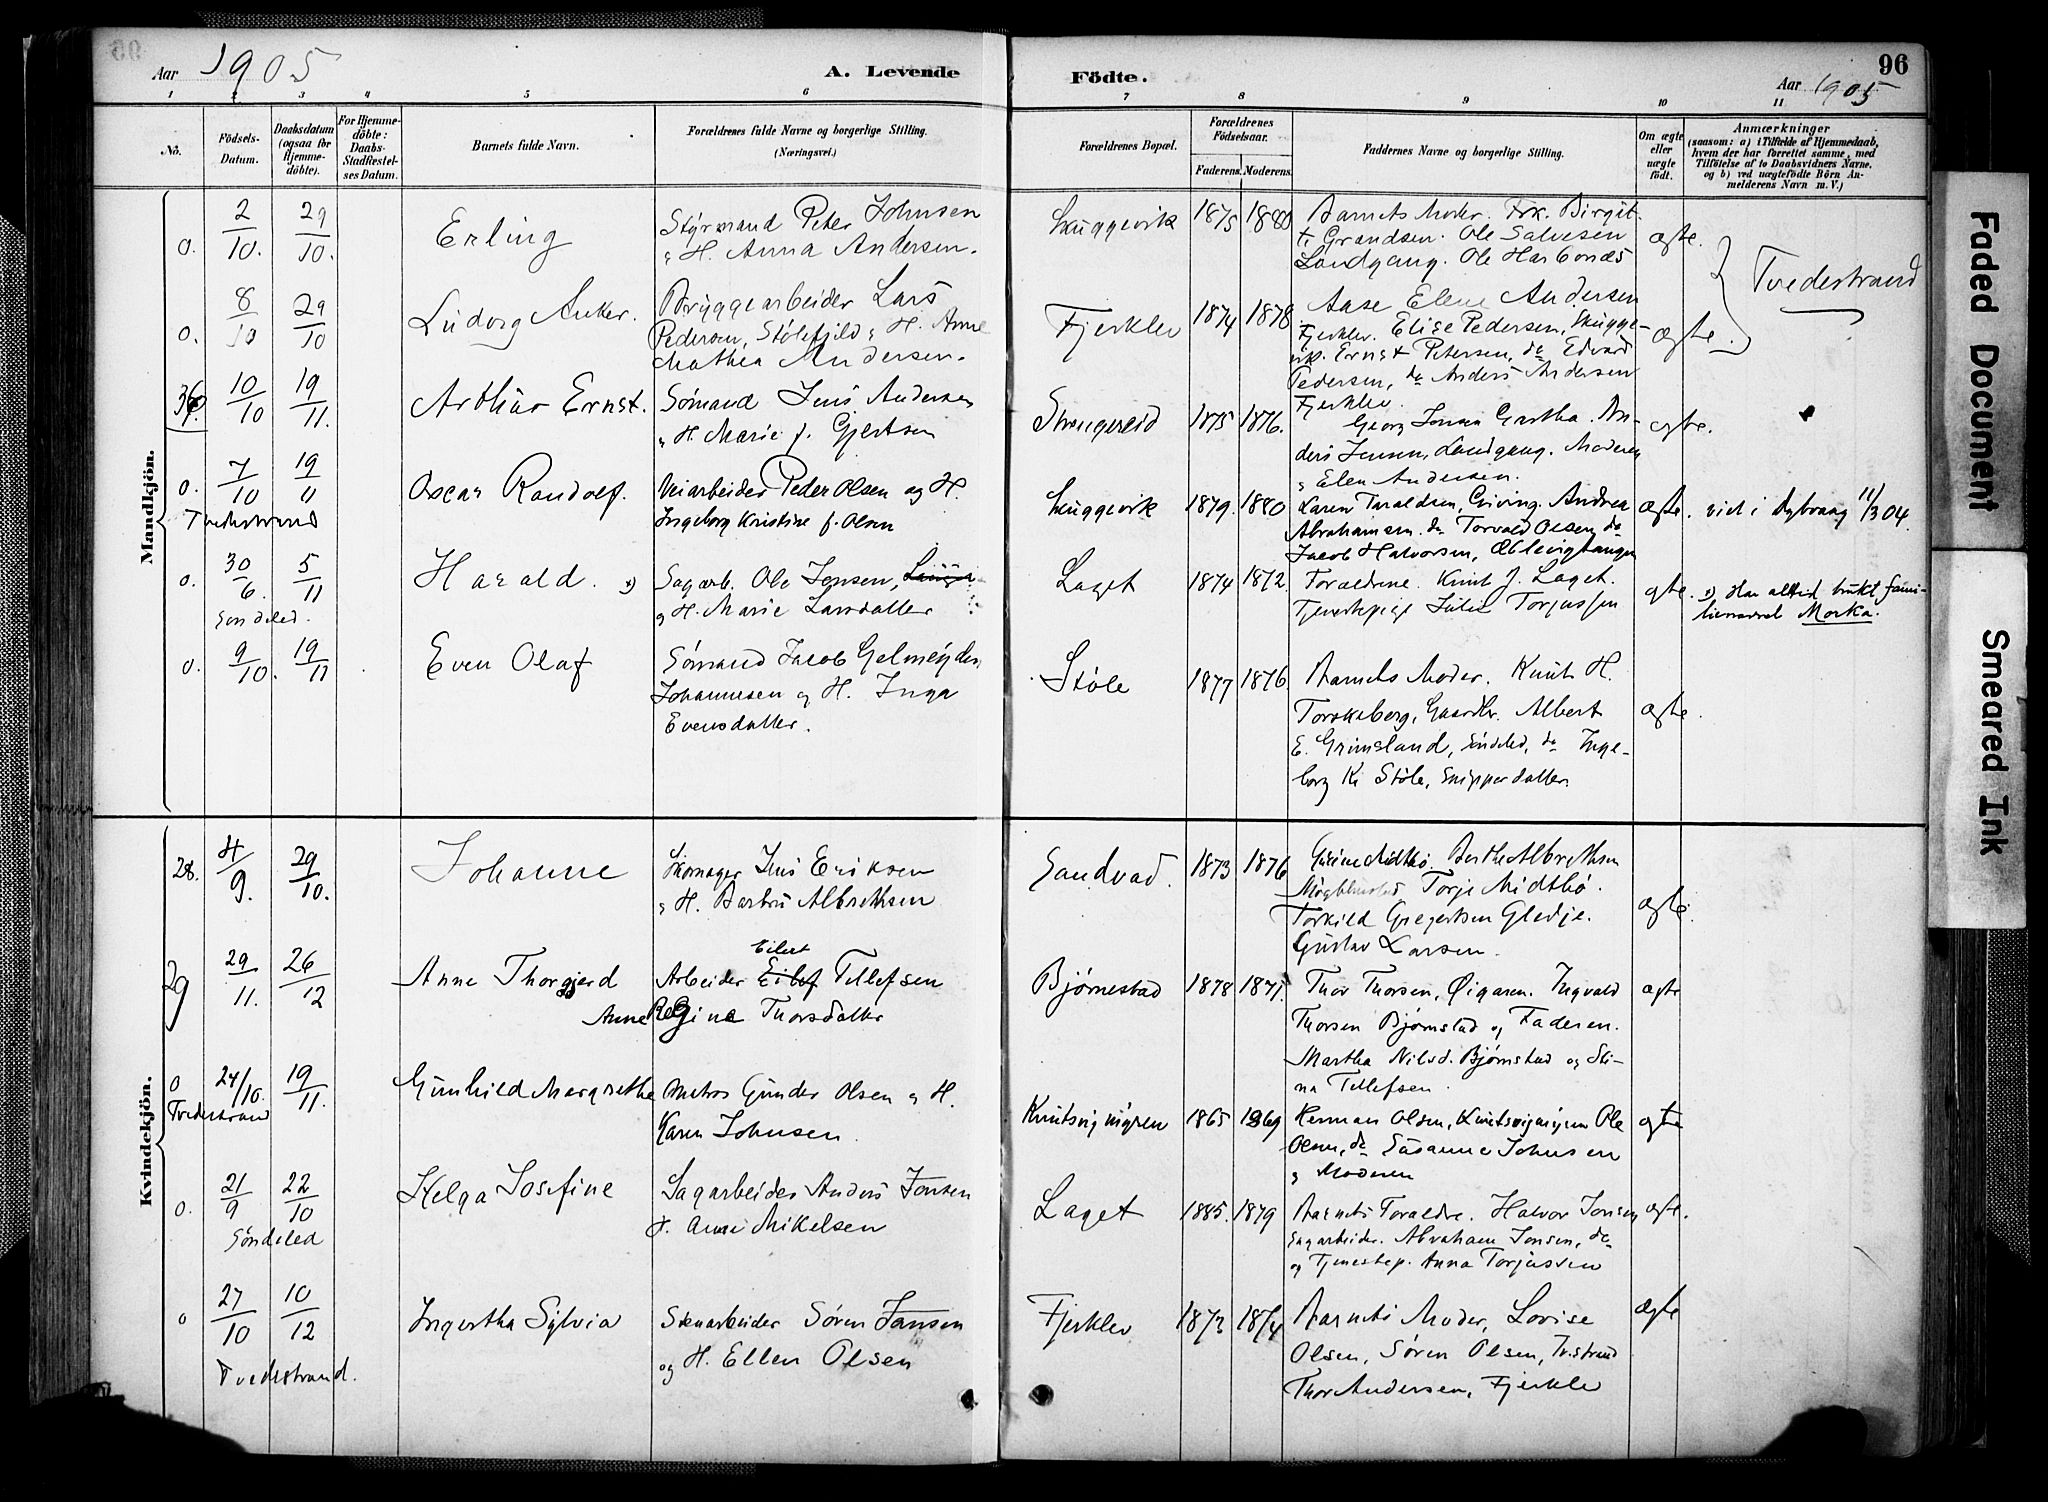 96
Aar 1905
A. Levende Födte.
Aar 1905
1 2 3 4 5 6 7 8 9 10 11
No.
Födsels-Datum.
Daabsdatum (ogsaa for Hjemmedöbte).
For Hjemmedöbte: Daabs-Stadfæstelses Datum.
Barnets fulde Navn.
Forældrenes fulde Navne og borgerlige Stilling. (Næringsvei.)
Forældrenes Bopæl.
Forældrenes Födselsaar.
Faderens. Moderens.
Faddernes Navne og borgerlige Stilling.
Om ægte eller uægte födt.
Anmærkninger
(saasom: a) i Tilfælde af Hjemmedaab,
hvem der har forrettet samme, med
Tilföielse af to Daabsvidners Navne,
og b) ved uægtefödte Börn Anmelderens Navn m. V.)
Mandkjön.
0. 2/10. 29/10. Erling
Styrmand Peter Johnsen
H. Anna Andersen.
Skuggevik 1875 1880
Barnets Moder. Frk. Birgit-
te Grandsen. Ole Salvesen
Landgang. Ole Harbonæs
ægte.
Tvedestrand
0. 8/10 29/10 Ludvig Anker.
Bryggearbeider Lars
Pedersen, Stølefjeld H. Anne
Mathea Andersen.
Fjerklev 1874 1878
Aase Elene Andersen
Fjerklev. Elise Pedersen, Skugge-
vik. Ernst Petersen, do Edvard
Pedersen, do Anders Andersen
Fjerklev.
ægte.
36. 10/10 19/11. Arthur Ernst.
Sømand Jens Andersen
H. Marie f. Gjertsen
Strengereid 1875 1876.
Georg Jensen Gartha. An-
ders Jensen, Landgang. Moderen
Elen Andersen.
ægte.
0. 7/10 19/11 Oscar Randolf.
Tvedestrand
Veiarbeider Peder Olsen og H.
Ingeborg Kristine f. Olsen
Skuggevik 1879. 1880
Karen Taraldsen, Giving. Andrea
Abrahamsen. do Torvald Olsen do
Jacob Halvorsen, Æblevigtangen
ægte. viet i Dybvaag 11/3 04.
0. 30/6. 5/11 Harald. x)
Søndeled.
Sagarb. Ole Jensen,
og H. Marie Larsdatter
Laget 1874 1872.
Forældrene. Knut J. Laget.
Tjenestepige Julie Torjussen
ægte. x) Har altid brukt fami-
lienavnet Morka.
0. 9/10. 19/11 Even Olaf
Sømand Jacob Gelmeyden
Johannesen og H. Inga
Evensdatter.
Støle 1877 1876
Barnets Moder. Knut H.
Torskeberg, Gaardbr. Albert
E. Grimsland, Søndeled, do Inge-
borg K. Støle, Skipperdatter.
ægte.
Kvindekjön.
28. 4/9. 29/10. Johanne
Skomager Jens Eriksen
H. Barbro Albrethsen
Sandvad. 1873 1876
Gurine Midtbø. Berthe Albrethsen
Torje Midtbø.
Torkild Gregertsen Gledje.
Gustav Larsen.
ægte.
29 29/11. 26/12 Anne Thorgjerd
Eilert
Arbeider Eilef Tellefsen
Anne Regine Thorsdatter
Bjørnestad 1878 1871.
Thor Thorsen, Øigaren. Ingvald
Thorsen Bjørnstad og Faderen.
Martha Nilsd. Bjørnstad og Sti-
na Tellefsen.
ægte
0 24/10. 19/11. Gunhild Margrethe
Tvedestrand
Matros Gunder Olsen H.
Karen Johnsen.
Knutsvigmyren 1865 1869
Herman Olsen, Knutsvigmyren Ole
Olsen, do Susanne Johnsen
Moderen
ægte
0. 21/9 22/10 Helga Josefine
Søndeled
Sagarbeider Anders Jonsen
H. Anne Mikelsen
Laget 1885. 1879
Barnets Forældre. Halvor Jonsen
Sagarbeider. Abraham Jonsen, do
og Tjenestep. Anna Torjussen
ægte.
0 27/10 10/12 Ingertha Sylvia
Tvedestrand.
Stenarbeider Søren Jansen
og H. Ellen Olsen
Fjerklev 1873 1874
Barnets Moder, Lovise
Olsen, Søren Olsen, Tv.strand
Thor Andersen, Fjerklev
ægte
Faded Document
Smeared Ink